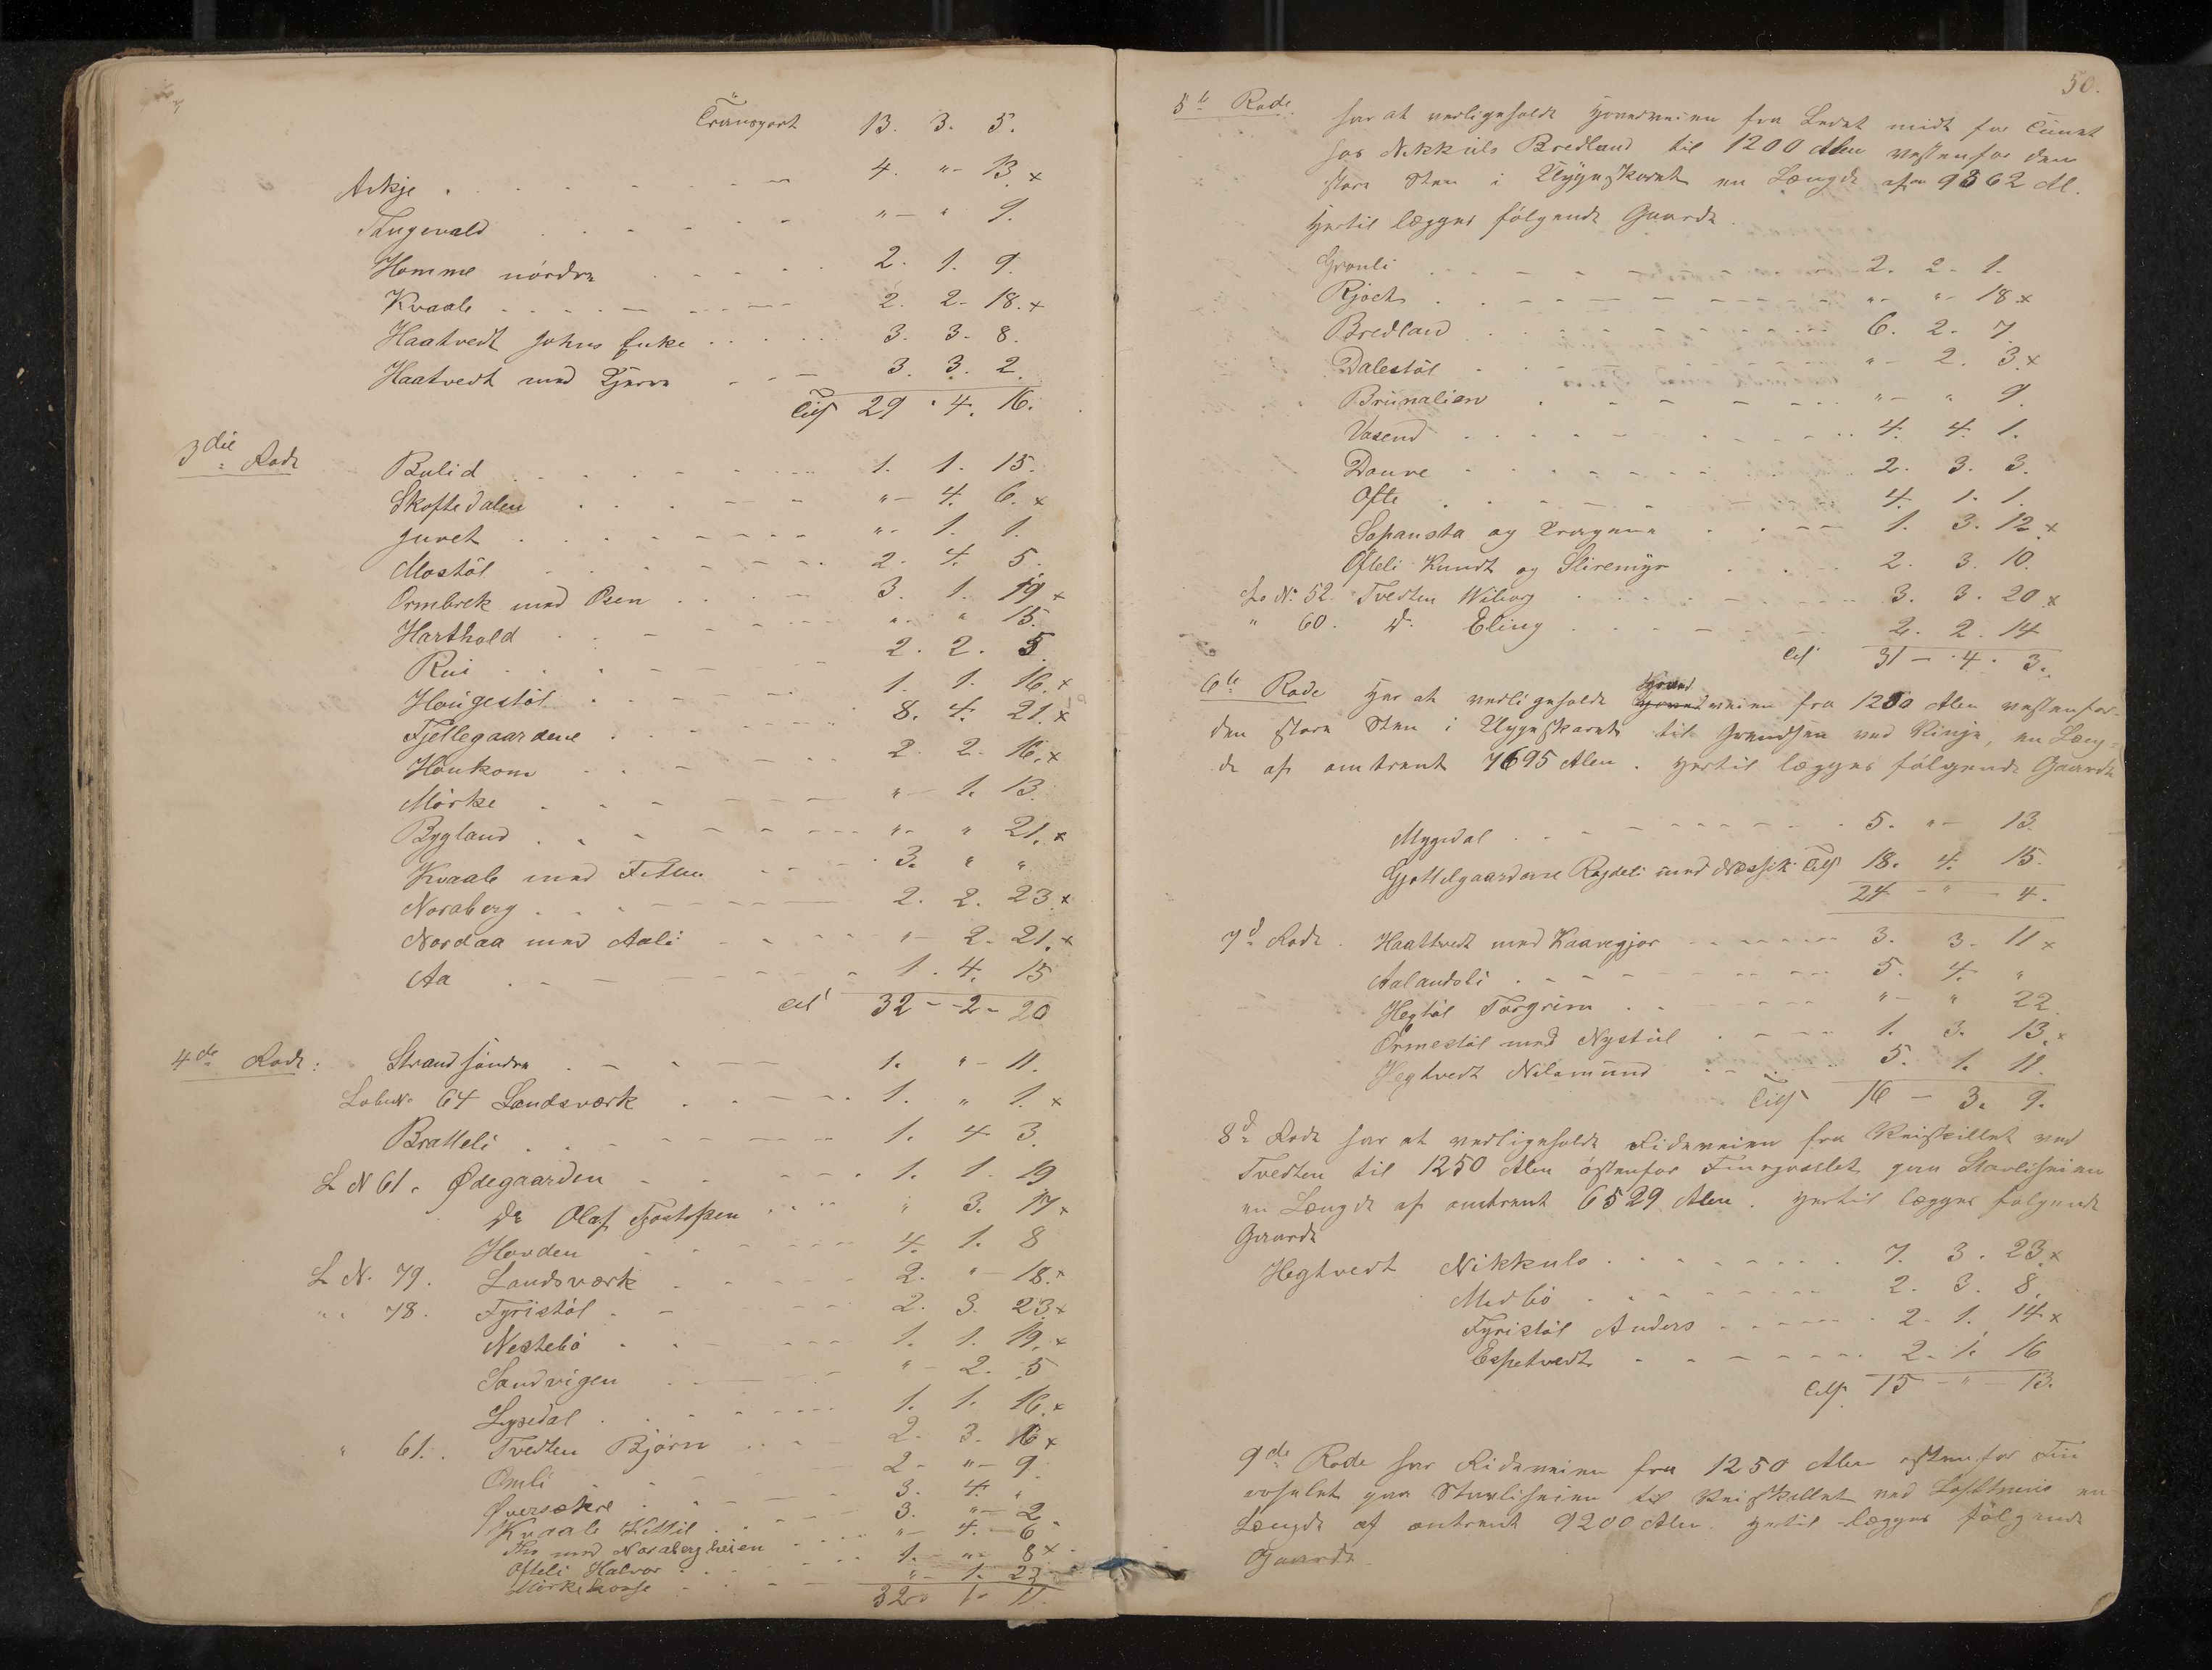 Transport 13. 3. 5.
Askje 4. "- 13 x
Tungevald "- " 9.
Homme nórdre 2. 1. 9.
Kvaale 2. 2- 18. x
Haatvedt Johns Enke 3. 3- 8.
Haatvedt med Kjerre 3. 3. 2.
Tils 29 . 4. 16.
3die Rode
Bulid 1. 1. 15.
Skoftedalen "- 4. 6. x
Juvet "- 1. 1.
Mostöl 2. 4. 5.
Ormbrek med Osen 3. 1. 19 x
Harthold " " 15.
Rui 2. 2. 5
Hougestöl 1. 1. 16. x
Fjellegaardene 8. 4. 21. x
Houkom 2 2- 16. x
Mórke "- 1. 13.
Bygland "- " 21. x
Kvaale med 3. " "
Noraberg 2. 2. 23 x
Nordaa med Aali "- 2- 21. x
Aa 1. 4. 15
Tils 32 - 2 - 20
4de Rode:
Strand söndre 1. "- 11.
Løbe No 64 Landsværk 1. " 1. x
Bratteli 1. 4 3.
L N 61. Ødegaarden 1. 1. 19
Do Olaf " 3. 17 x
Hovden 4. 1. 8
L N. 79. Landsværk 2. "- 18. x
" 78. Fyristöl 2. 3. 23 x
Nestebö 1. 1. 19. x
Sandvigen "- 2. 5
Lysedal 1. 1. 16. x
" 61. Tvedten Björn 2. 3. 16 x
Omli 2- "- 9.
Øversakre 3. 4. "
Kvaale Kittil 3. "- 2
Tho med Norabergheien "- 4. - 6
Ofteli Halvor 1. - "- 8 x
"- 1. 23
32 - 1 - 11.
50.
5te Rode. har at vedligeholde Hovedveien fra Ledet midt for Tunet
hos Nikkuls Bredland til 1200 Alen vestenfor den
store Sten i en Længde af 9362 Al.
Hertil lægges fölgende Gaarde.
Grouli 2. 2- 1.
"- "- 18 x
Bredland 6. 2- 7
Dalestöl "- 2. 3. x
Brunalien "- " 9.
Vasend 4. 4. 1.
Douve 2. 3. 3.
Ofte 4. 1. 1.
og 1. 3. 12 x
Ofteli Knudt og Sliremyr 2. 3. 10.
Lo No 52. Tvedten Wiborg 3. 3. 20 x
" 60. do. Eling 2. 2. 14
Tils 31 - 4. 3.
6te Rode Har at vedligeholde Hovedveien fra 1200 Alen vestenfor
den store Sten i til Grændsen ved Vinje, en Læng-
de af omtrent 7695 Alen. Hertil lægges fölgende Gaarde
Mygedal 5. "- 13.
med Tils 18. 4. 15.
24 - " - 4.
7de Rode. Haatvedt med 3. 3. 11 x
Aalandsli 5. 4. "
Torgrim "- " 22
Ormestöl med Nystöl 1. 3. 13. x
Hegtvedt Nilsmund 5. 1. 11.
Tils 16 - 3. 9.
8de Rode har at vedligeholde Rideveien fra Veiskillet ved
Tvedten til 1250 Alen östenfor paa
en Længde af omtrent 6529 Alen. Hertil lægges fölgende
Gaarde
Hegtvedt Nikkuls 7. 3. 23 x
Midbö 2. 3. 8.
Fyristöl Anders 2- 1. 14 x
Espetvedt 2- 1. 16
Tils. 15 - " - 13.
9de Rode har Rideveien fra 1250 Alen östenfor
paa til Veiskillet ved en
Længde af omtrent 9200 Alen. Hertil lægges fölgende
Gaarde.